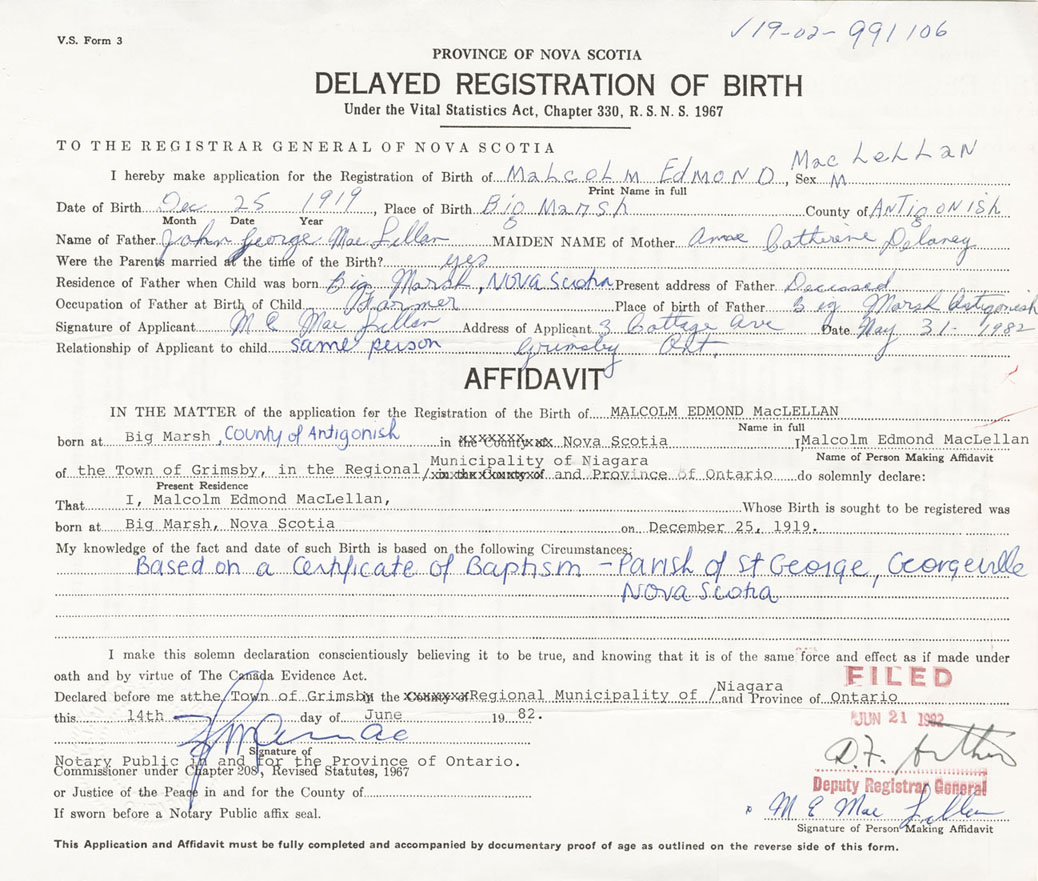 √19-02-991106
V.S. Form 3
PROVINCE OF NOVA SCOTIA
DELAYED REGISTRATION OF BIRTH
Under the Vital Statistics Act, Chapter 330, R. S. N. S. 1967
TO THE REGISTRAR GENERAL OF NOVA SCOTIA
I hereby make application for the Registration of Birth of MaLcoLM EdMOND MacLeLLaN, Sex M
Print Name in full
Date of Birth Dec 25 1919, Place of Birth Big Marsh County of ANTigONISh
Month Date Year
Name of Father John George MacLellan MAIDEN NAME of Mother Catherine Delaney
Were the Parents married at the time of the Birth? yes
Residence of Father when Child was born Big Marsh, NOVA Scotia Present address of Father Deceased
Occupation of Father at Birth of Child Farmer Place of birth of Father Big Marsh Antigonish
Signature of Applicant M E MacLellan Address of Applicant 3 Cottage Ave Date May 31 - 1982
Relationship of Applicant to child same person Grimsby Ont.
AFFIDAVIT
IN THE MATTER of the application for the Registration of the Birth of MALCOLM EDMOND MacLELLAN
Name in full
born at Big Marsh, County of Antigonish in the County of Nova Scotia I, Malcolm Edmond MacLellan
Name of Person Making Affidavit
Municipality of Niagara
of the Town of Grimsby, in the Regional / in the County of and Province of Ontario do solemnly declare:
Present Residence
That I, Malcolm Edmond MacLellan, Whose Birth is sought to be registered was
born at Big Marsh, Nova Scotia on December 25, 1919.
My knowledge of the fact and date of such Birth is based on the following Circumstances:
Based on a Certificate of Baptism - Parish of St George, Georgeville
Nova Scotia
I make this solemn declaration conscientiously believing it to be true, and knowing that it is of the same force and effect as if made under
oath and by virtue of The Canada Evidence Act.
FILED
Declared before me at the Town of Grimsby in the County of Regional Municipality of / Niagara and Province of Ontario
this 14th day of June 19 82.
JUN 21 1982
Signature of
Notary Public in and for the Province of Ontario.
Commissioner under Chapter 208, Revised Statutes, 1967
D.F.
Deputy Registrar General
or Justice of the Peace in and for the County of
M E MacLellan
If sworn before a Notary Public affix seal.
Signature of Person Making Affidavit
This Application and Affidavit must be fully completed and accompanied by documentary proof of age as outlined on the reverse side of this form.